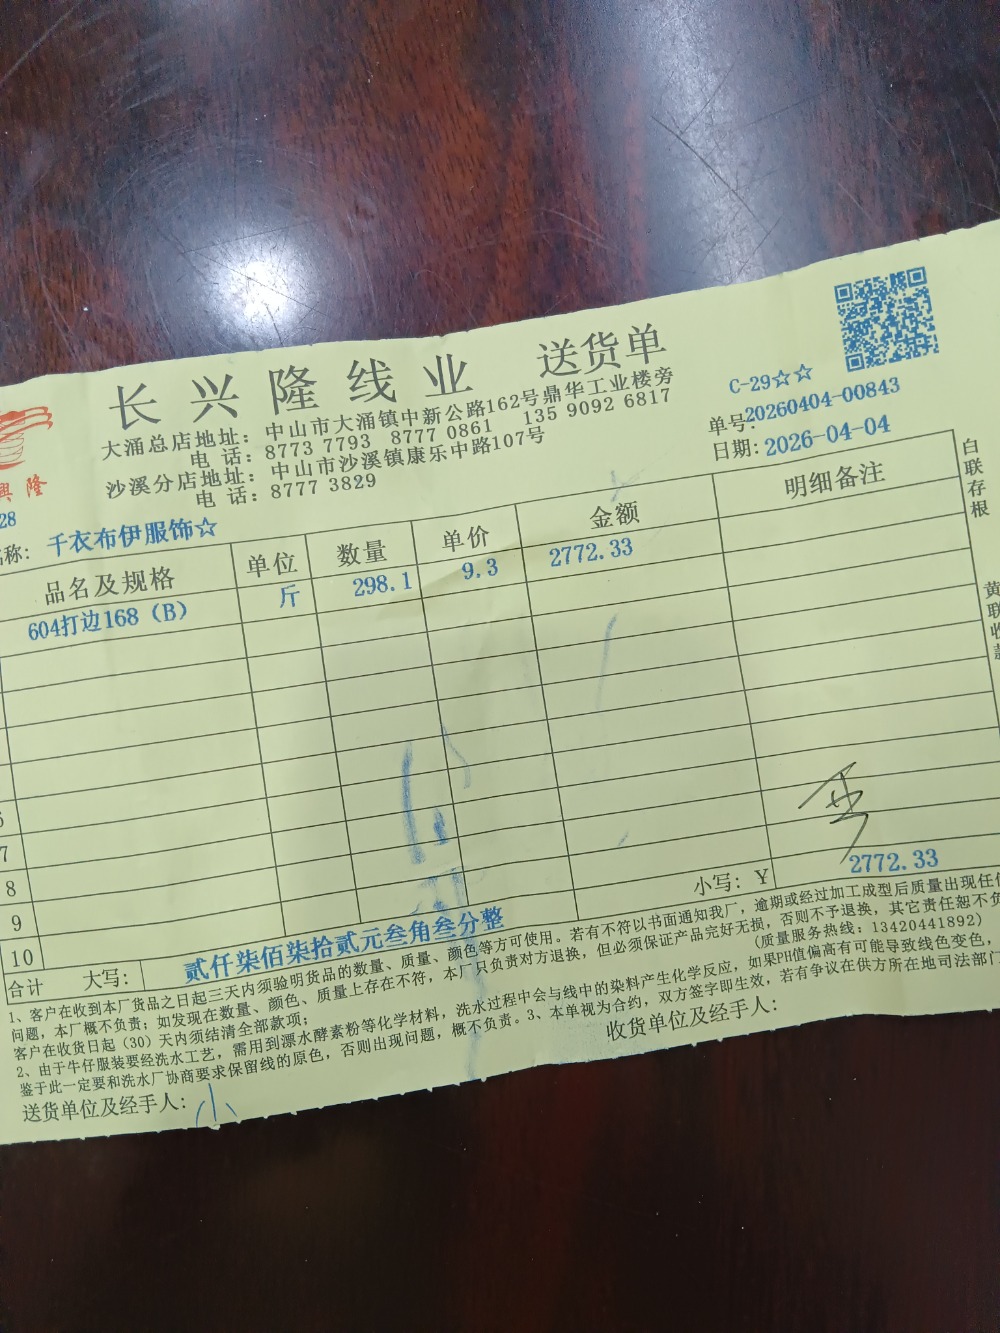 长兴隆线业 送货单
C-29☆☆
大涌总店地址：中山市大涌镇中新公路162号鼎华工业楼旁
电 话：8773 7793 8777 0861 135 9092 6817
沙溪分店地址：中山市沙溪镇康乐中路107号
电 话：8777 3829
单号:20260404-00843
日期:2026-04-04
興隆
28
名称: 千衣布伊服饰☆
品名及规格 单位 数量 单价 金额 明细备注
604打边168（B） 斤 298.1 9.3 2772.33
7
8
9
10
合计 大写: 贰仟柒佰柒拾贰元叁角叁分整 小写: Y 2772.33
1、客户在收到本厂货品之日起三天内须验明货品的数量、质量、颜色等方可使用。若有不符以书面通知我厂，逾期或经过加工成型后质量出现任
问题，本厂概不负责；如发现在数量、颜色、质量上存在不符，本厂只负责对方退换，但必须保证产品完好无损，否则不予退换，其它责任恕不负
客户在收货日起（30）天内须结清全部款项； （质量服务热线：13420441892）
2、由于牛仔服装要经洗水工艺，需用到漂水酵素粉等化学材料，洗水过程中会与线中的染料产生化学反应，如果PH值偏高有可能导致线色变色，
鉴于此一定要和洗水厂协商要求保留线的原色，否则出现问题，概不负责。3、本单视为合约，双方签字即生效，若有争议在供方所在地司法部门
送货单位及经手人: 小 收货单位及经手人:
白联存根
黄联收